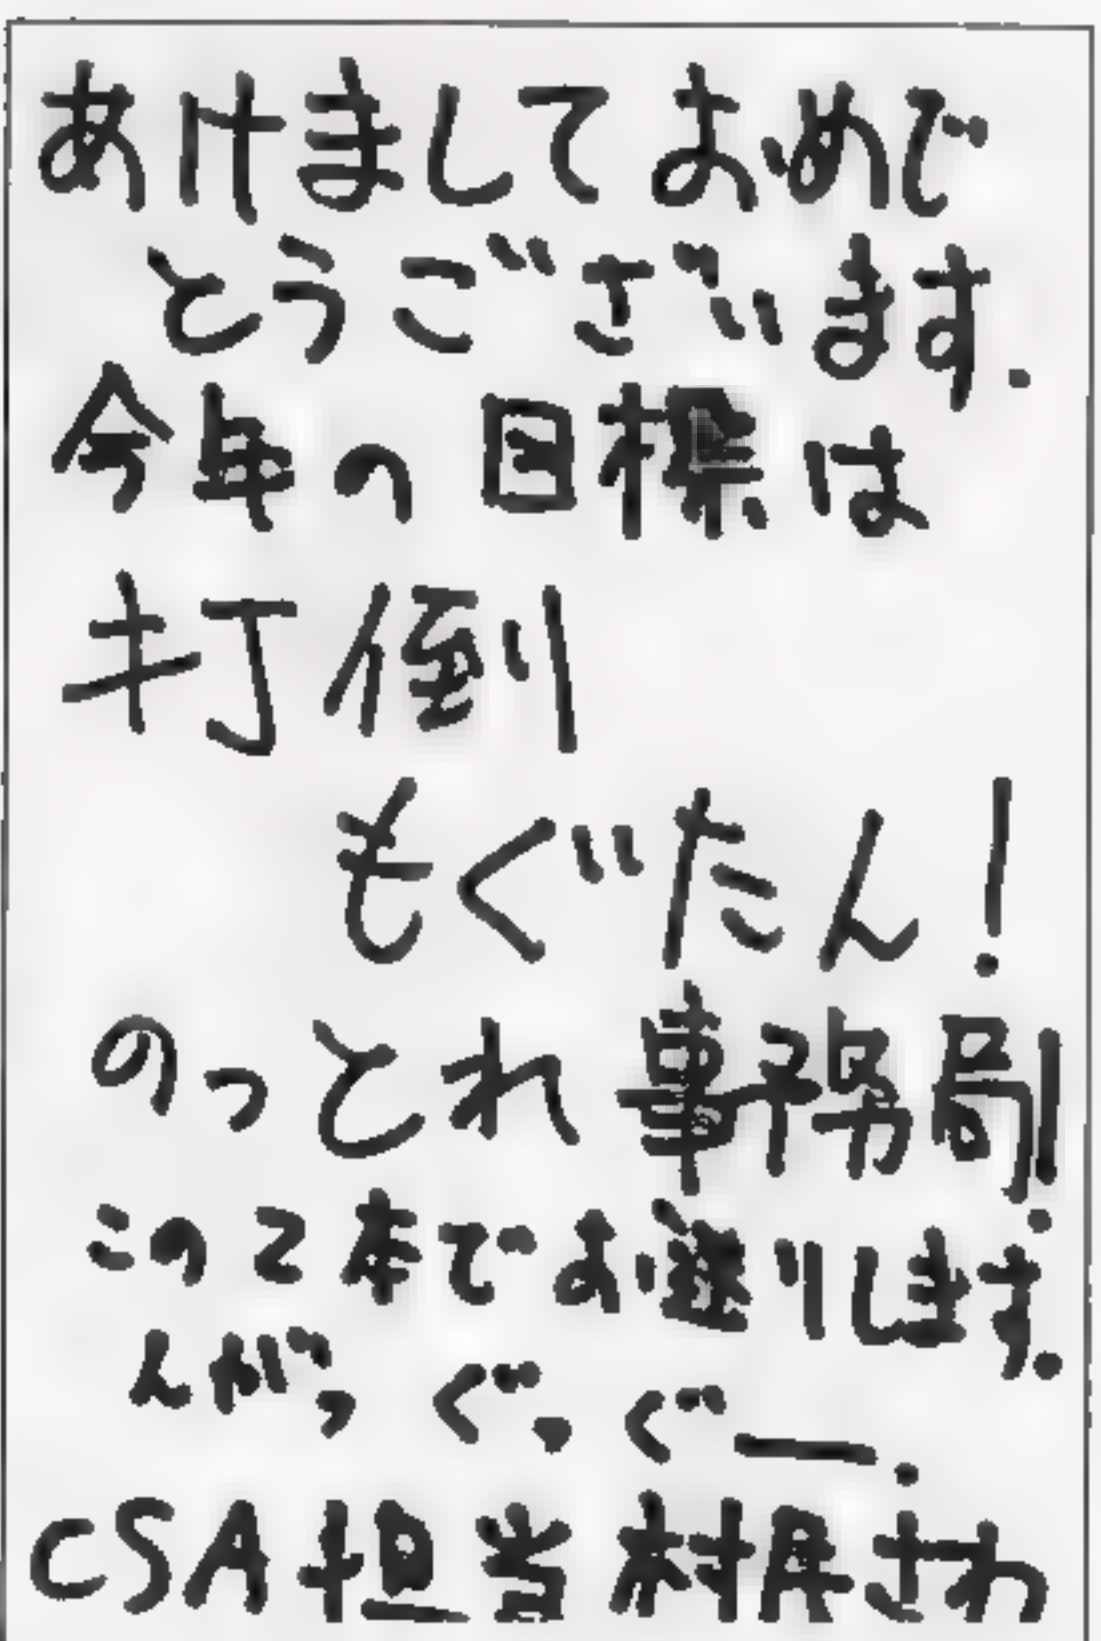 あけましておめで
とうございます.
今年の目標は
打倒
もぐたん!
のっとれ事務局!
この2本でお送りします.
んがっぐっ,ぐー.
CSA担当村長さわ